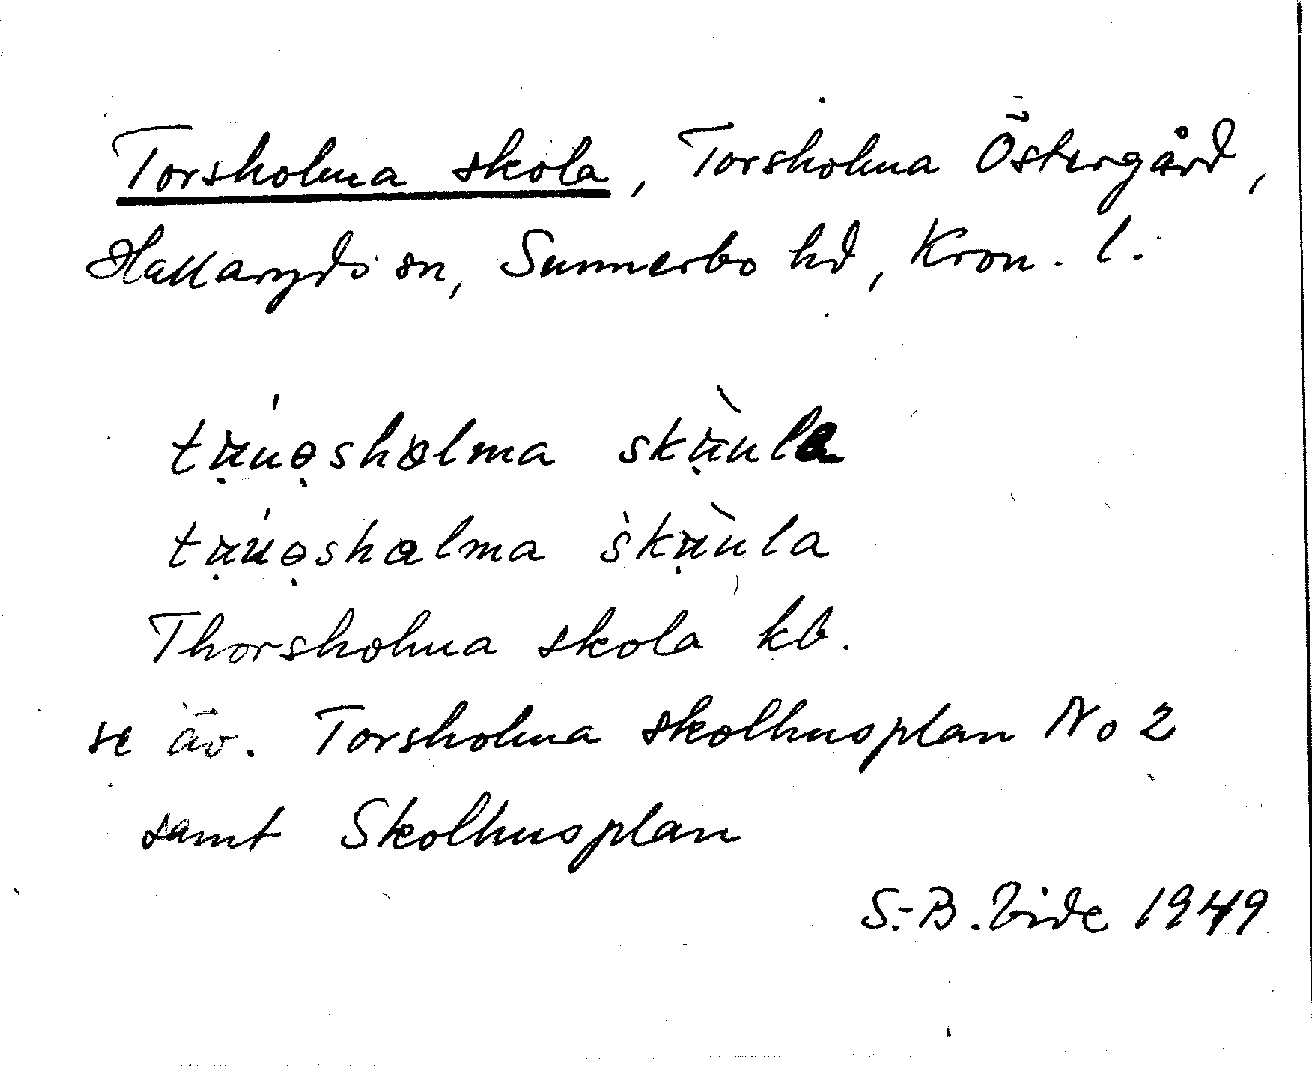 Torsholma skola, Torsholma Östergård,
Hallaryds sn, Sunnerbo hd, Kron. l.
Thorsholma skola kb.
se äv. Torsholma skolhusplan No 2
samt Skolhusplan
S.-B. Vide 1949